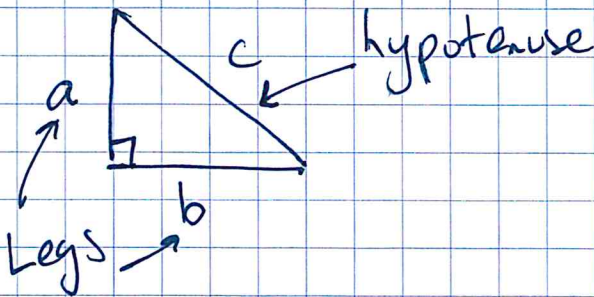 c
hypotenuse
a
b
Legs